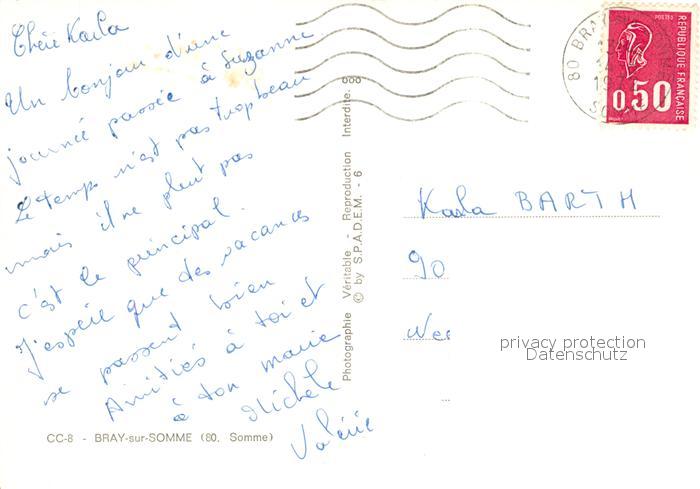 Chère Karla
Un bonjour d'une
journée passée à Suzanne
Le temps n'est pas trop beau
mais il ne pleut pas
c'est le principal.
J'espère que des vacances
se passent bien
Amitiés à toi et
à ton marie
Michèle
Valérie
CC-8 - BRAY-sur-SOMME (80. Somme)
Photographie Véritable - Reproduction Interdite.
© by S.P.A.D.E.M. - 6
80 BRAY
SO
POSTES
RÉPUBLIQUE FRANÇAISE
0.50
Karla BARTH
90
privacy protection
Datenschutz